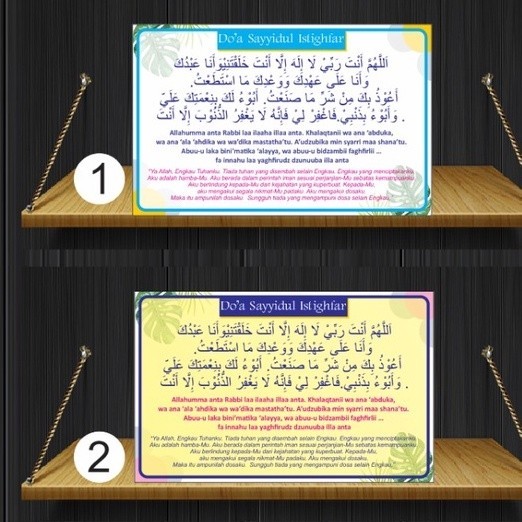 Do'a Sayyidul Istighfar
اَللَّهُمَّ أَنْتَ رَبِّيْ لَا إِلَهَ إِلَّا أَنْتَ خَلَقْتَنِيْوَأَنَا عَبْدُكَ
وَأَنَا عَلَى عَهْدِكَ وَوَعْدِكَ مَا اسْتَطَعْتُ.
أَعُوْذُ بِكَ مِنْ شَرِّ مَا صَنَعْتُ. أَبُوْءُ لَكَ بِنِعْمَتِكَ عَلَيَّ
. وَأَبُوْءُ بِذَنْبِيْ.فَاغْفِرْ لِيْ فَإِنَّهُ لَا يَغْفِرُ الذُّنُوْبَ إِلَّا أَنْتَ
Allahumma anta Rabbi laa ilaaha illaa anta. Khalaqtanii wa ana 'abduka,
wa ana 'ala 'ahdika wa wa'dika mastatha'tu. A'udzubika min syarri maa shana'tu.
Abuu-u laka bini'matika 'alayya, wa abuu-u bidzambii faghfirlii ...
fa innahu laa yaghfirudz dzunuuba illa anta
"Ya Allah, Engkau Tuhanku. Tiada tuhan yang disembah selain Engkau. Engkau yang menciptakanku.
Aku adalah hamba-Mu. Aku berada dalam perintah iman sesuai perjanjian-Mu sebatas kemampuanku.
Aku berlindung kepada-Mu dari kejahatan yang kuperbuat. Kepada-Mu,
aku mengakui segala nikmat-Mu padaku. Aku mengakui dosaku.
Maka itu ampunilah dosaku. Sungguh tiada yang mengampuni dosa selain Engkau,"
1
Do'a Sayyidul Istighfar
اَللَّهُمَّ أَنْتَ رَبِّيْ لَا إِلَهَ إِلَّا أَنْتَ خَلَقْتَنِيْوَأَنَا عَبْدُكَ
وَأَنَا عَلَى عَهْدِكَ وَوَعْدِكَ مَا اسْتَطَعْتُ.
أَعُوْذُ بِكَ مِنْ شَرِّ مَا صَنَعْتُ. أَبُوْءُ لَكَ بِنِعْمَتِكَ عَلَيَّ
. وَأَبُوْءُ بِذَنْبِيْ.فَاغْفِرْ لِيْ فَإِنَّهُ لَا يَغْفِرُ الذُّنُوْبَ إِلَّا أَنْتَ
Allahumma anta Rabbi laa ilaaha illaa anta. Khalaqtanii wa ana 'abduka,
wa ana 'ala 'ahdika wa wa'dika mastatha'tu. A'udzubika min syarri maa shana'tu.
Abuu-u laka bini'matika 'alayya, wa abuu-u bidzambii faghfirlii ...
fa innahu laa yaghfirudz dzunuuba illa anta
"Ya Allah, Engkau Tuhanku. Tiada tuhan yang disembah selain Engkau. Engkau yang menciptakanku.
Aku adalah hamba-Mu. Aku berada dalam perintah iman sesuai perjanjian-Mu sebatas kemampuanku.
Aku berlindung kepada-Mu dari kejahatan yang kuperbuat. Kepada-Mu,
aku mengakui segala nikmat-Mu padaku. Aku mengakui dosaku.
Maka itu ampunilah dosaku. Sungguh tiada yang mengampuni dosa selain Engkau,"
2